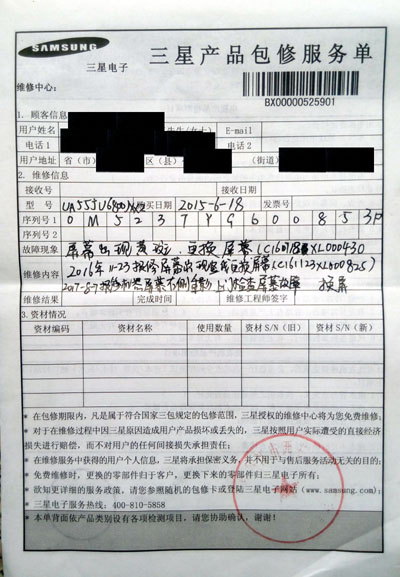 SAMSUNG
三星电子
三星产品包修服务单
维修中心:
BX00000525901
1. 顾客信息
用户姓名 先生(女士) E-mail
电话1 电话2
用户地址 省(市) 区(县) (街道)
2. 维修信息
接收号
型号 UA55JU6800 购买日期 2015-6-18 发票号
序列号1 0M523TYG600853
序列号2
故障现象 屏幕出现 更换屏幕
维修内容 2016年11-23 报修屏幕 更换屏幕(C161123XL000825)
2017-8-7 屏幕 检查屏幕故障 换屏
维修结果 完成时间 维修工程师签字
3. 资材情况
资材编码 资材名称 使用数量 资材S/N(旧) 资材S/N(新)
* 在包修期限内，凡是属于符合国家三包规定的包修范围，三星授权的维修中心将为您免费维修；
* 对于在维修过程中因三星原因造成用户产品损坏或丢失的，三星按照用户实际遭受的直接经济
损失进行赔偿，而不对用户的任何间接损失承担责任；
* 在维修服务中获得的用户个人信息，三星将承担保密义务，并不用于与售后服务活动无关的目的；
* 免费维修时，更换的零部件归于客户，更换下来的零部件归三星电子所有；
* 欲知更详细的服务政策，请您参照随机的包修卡或登陆三星电子网站（www.samsung.com）；
* 三星电子服务热线：400-810-5858
* 本单背面依产品类别设有各项检测项目，请您协助确认，谢谢！